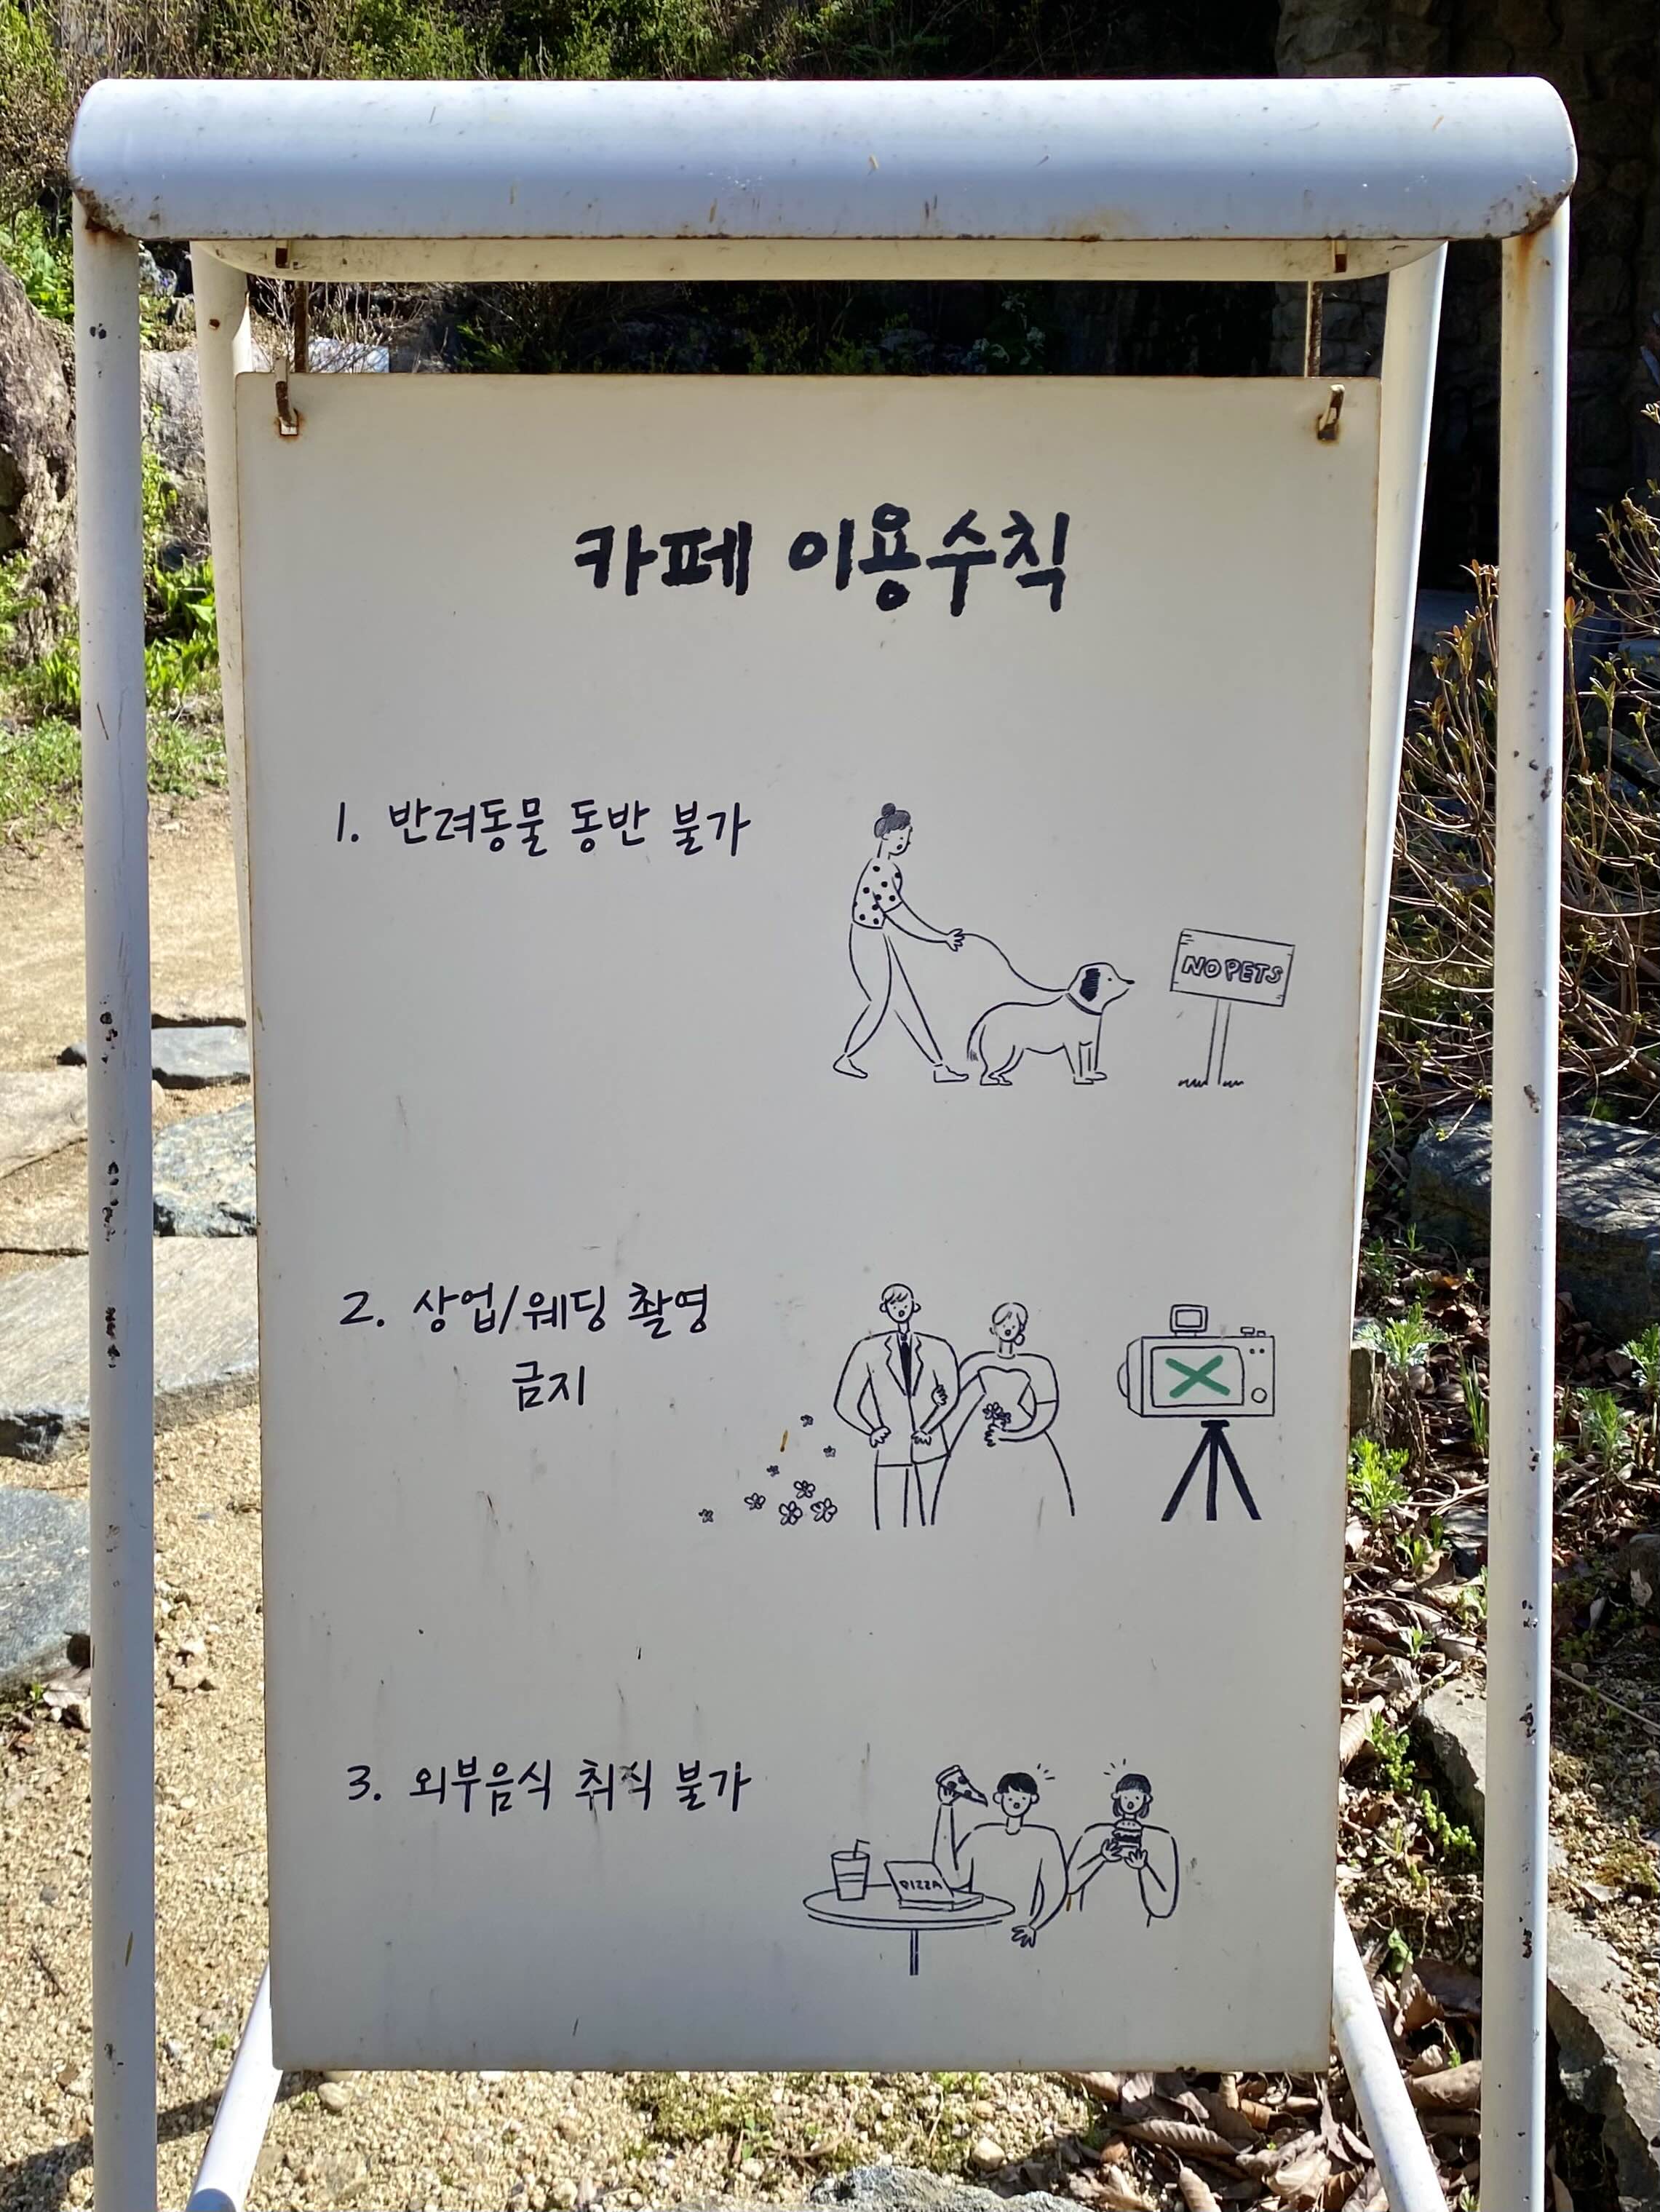 카페 이용수칙
1. 반려동물 동반 불가
NO PETS
2. 상업/웨딩 촬영
금지
3. 외부음식 취식 불가
PIZZA